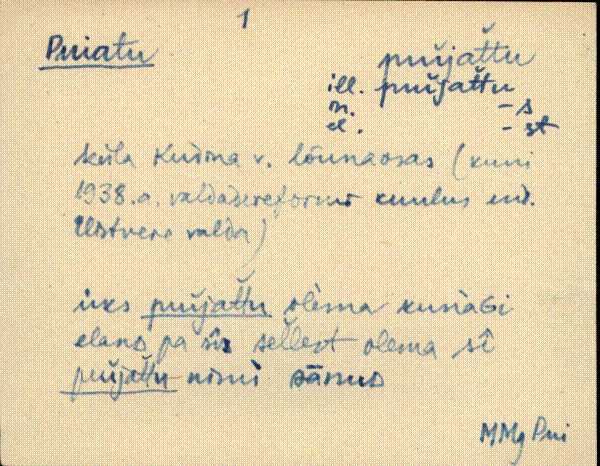 1
Puiatu
pŭi̯at̆tu
ill. pŭi̯at̆tu
in. -s
el. -st
küla Kudina v. lõunaosas (kuni
1938.a. valdadereformi kuulus end.
Ilstvere valda)
üks pŭi̯at̆tu olema kunaGi
elanD pa sīs sellest olema sȋ
pŭi̯at̆tu nimi sānuD
MMg Pui